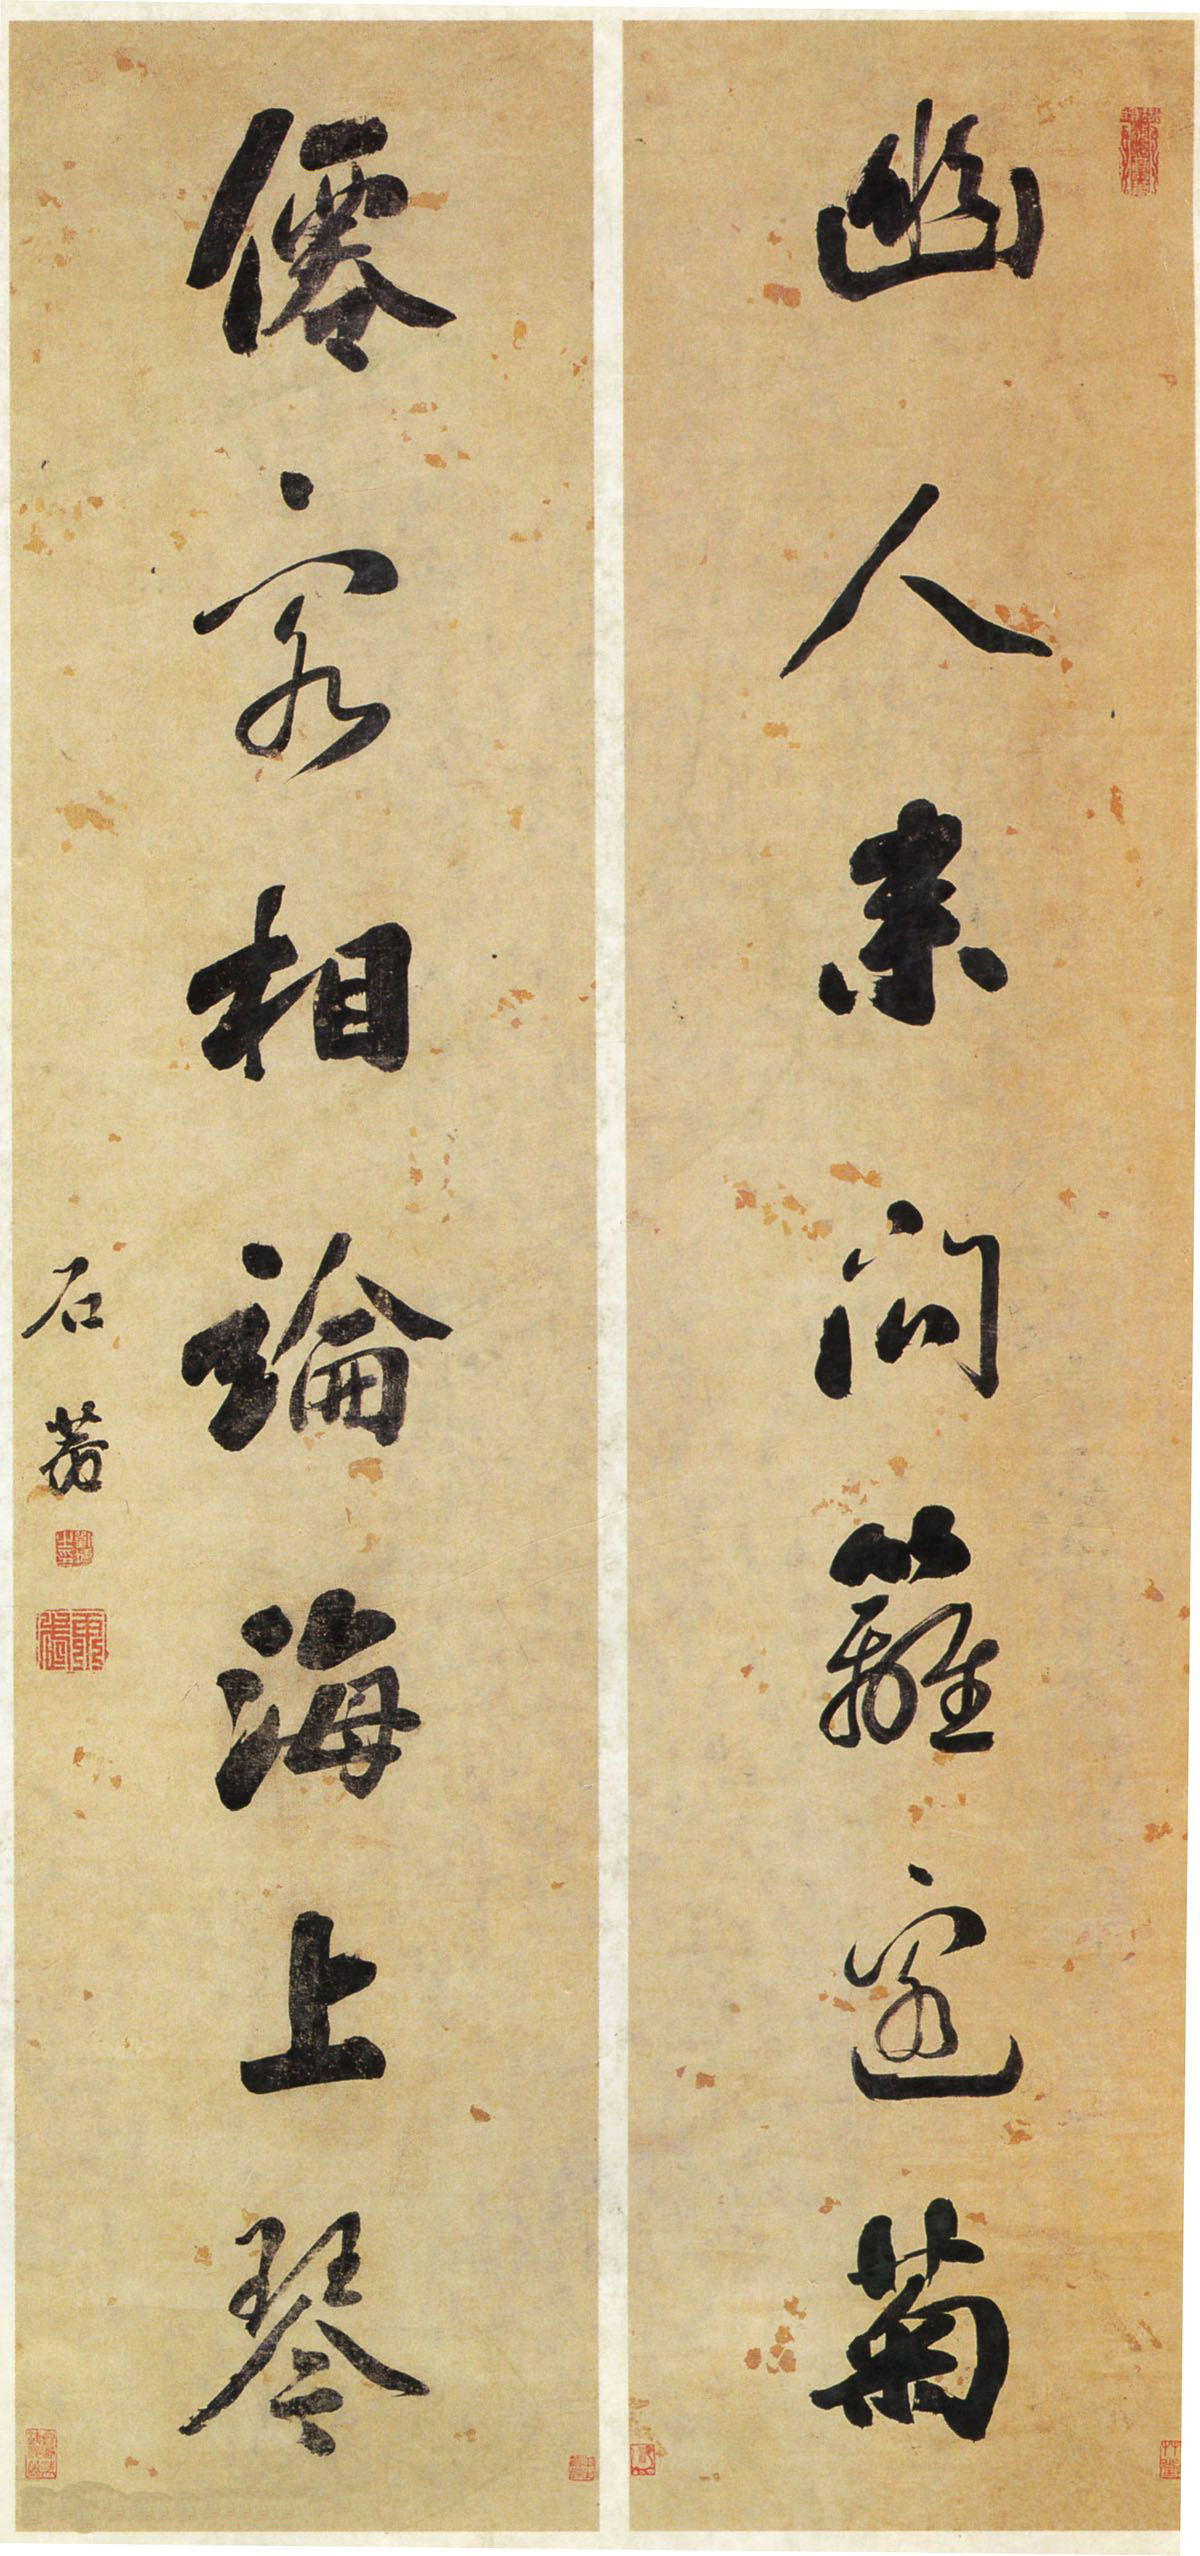 幽人素問籬邊菊
僊客相論海上琴
石菴